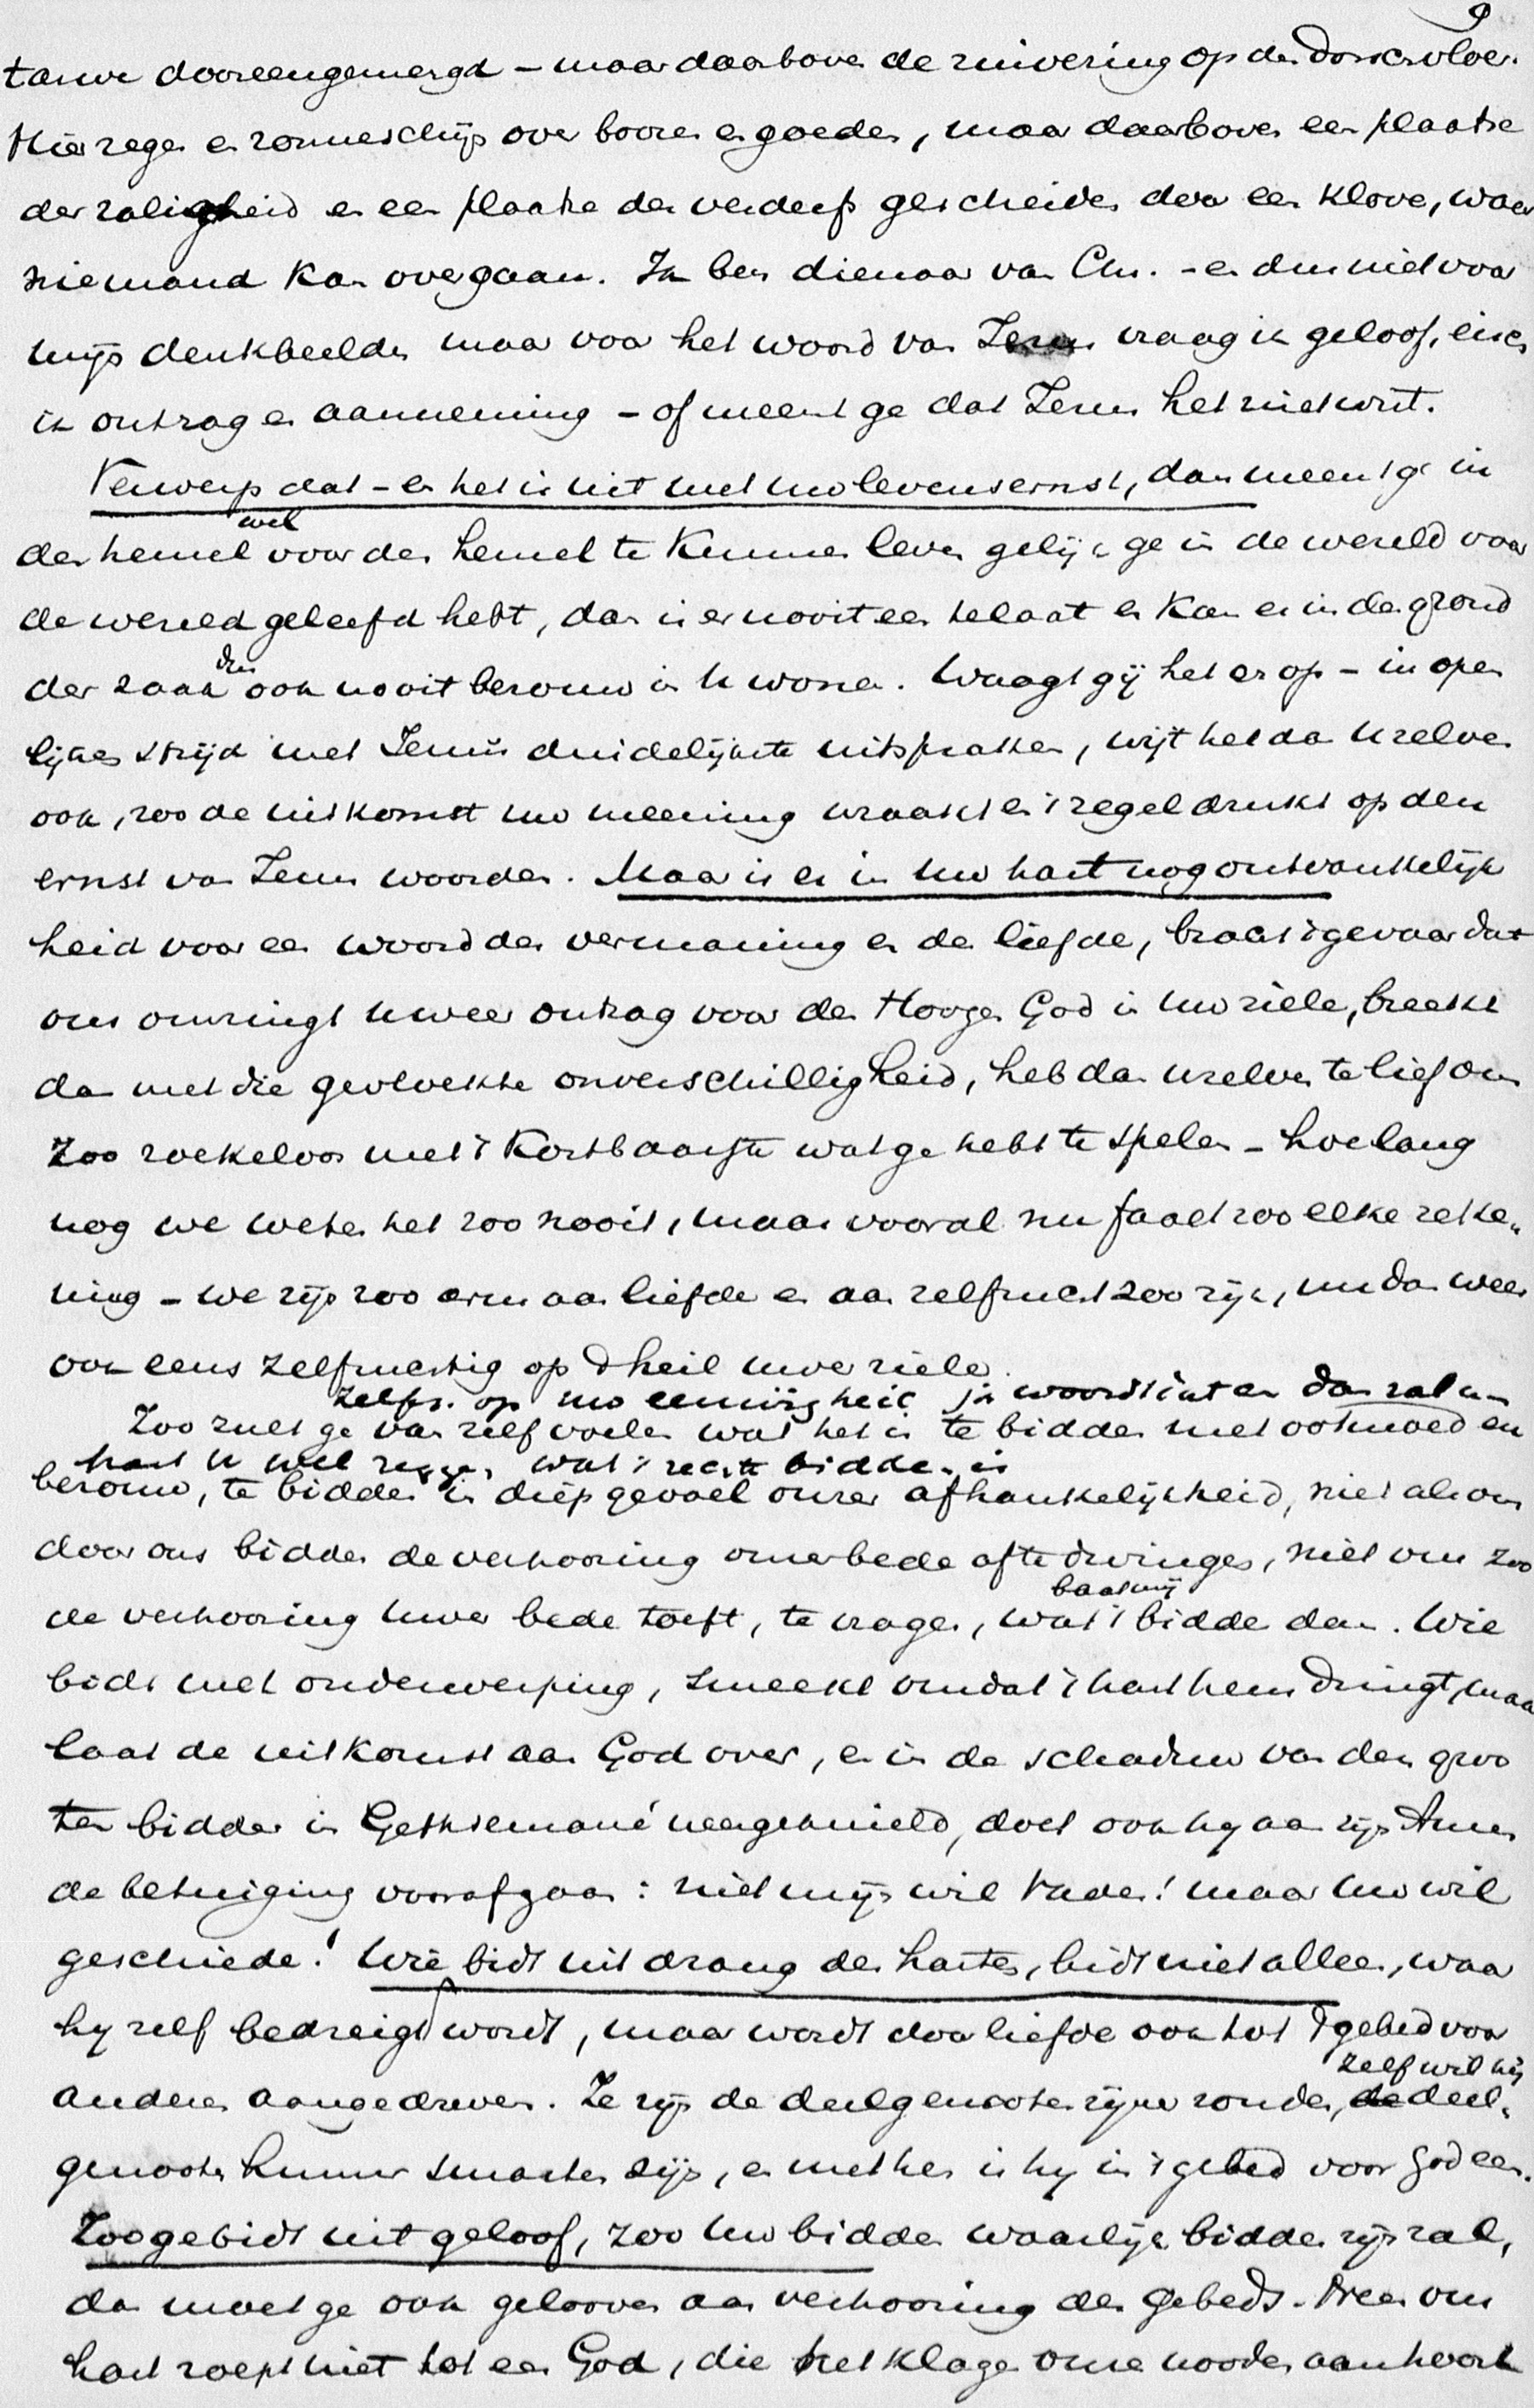 9
tarwe dooreengemengd – maar daarboven de zuivering op den dorschvloer.
Hier regen en zonneschijn over boozen en goeden, maar daarboven een plaatse
der zaligheid en een plaatse des verderfs gescheiden door een klove, waar
niemand kan overgaan. Ik ben dienaar van Chr. – en dus niet voor
mijn denkbeelden maar voor het woord van Jezus vraag ik geloof, eisch
ik ontzag en aanneming – of meent ge dat Jezus het niet wist.
Verwerp dat – en het is uit met uw levensernst, dan meent ge in
den hemel wel voor den hemel te kunnen leven gelijk ge in de wereld voor
de wereld geleefd hebt, dan is er nooit een te laat en kan er in den grond
der zaak dus ook nooit berouw in U wonen. Waagt gij het er op – in open
lijken strijd met Jezus duidelijkste uitspraken, wijt het dan Uzelven
ook, zoo de uitkomst uw meening wraakt en 't zegel drukt op den
ernst van Jezus woorden. Maar is er in uw hart nog ontvankelijk
heid voor een woord der vermaning en der liefde, bracht 't gevaar dat
ons omringt U weer ontzag voor den Hoogen God in uw ziele, breekt
dan met die gevloekte onverschilligheid, heb dan Uzelven te lief om
zoo roekeloos met 't kostbaarste wat ge hebt te spelen – hoelang
nog we weten het zoo nooit, maar vooral nu faalt zoo elke reke„
ning – we zijn zoo arm aan liefde en aan zelfzucht zoo rijk, nu dan wees
ook eens zelfzuchtig op 't heil uwer ziele.
zelfz. op uw eeuwigheid ja woordt 't en dan zal uw
Zoo zult ge van zelf voelen wat het is te bidden met ootmoed en
hart U wel zeggen wat 't rechte bidden is
berouw, te bidden in diep gevoel onzer afhankelijkheid, niet als om
door ons bidden de verhooring onzer bede af te dwingen, niet om zoo
de verhooring uwer bede toeft, te vragen, wat baat mij 't bidden dan. Wie
bidt met onderwerping, smeekt omdat 't hart hem dringt, maar
laat de uitkomst aan God over, en in de schaduw van den groo
ten bidder in Gethsemané neergeknield, doet ook hij aan zijn Amen
de betuiging voorafgaan: niet mijn wil Vader! maar Uw wil
geschiede! Wie bidt uit drang des harten, bidt niet alleen, waar
hij zelf bedreigd wordt, maar wordt door liefde ook tot 't gebed voor
anderen aangedreven. Ze zijn de deelgenooten zijner zonden, zelf wil hij deel„
genoot hunner smarten zijn, en met hen is hij in 't gebed voor God een.
Zoo ge bidt uit geloof, zoo Uw bidden waarlijk bidden zijn zal,
dan moet ge ook gelooven aan verhooring des gebeds. Neen ons
hart roept niet tot een God, die het klagen onzer nooden aanhoort